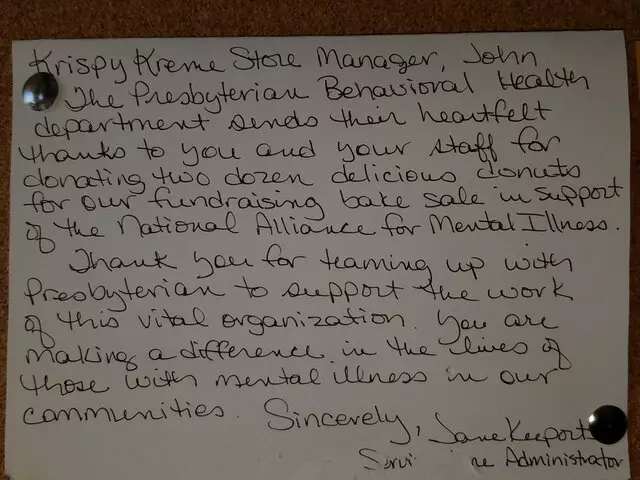 Krispy Kreme Store Manager, John
The Presbyterian Behavioral Health
department sends their heartfelt
thanks to you and your staff for
donating two dozen delicious donuts
for our fundraising bake sale in support
of the National Alliance for Mental Illness.
Thank you for teaming up with
Presbyterian to support the work
of this vital organization. You are
making a difference in the lives of
those with mental illness in our
communities. Sincerely, Jane Keeports
Administrator